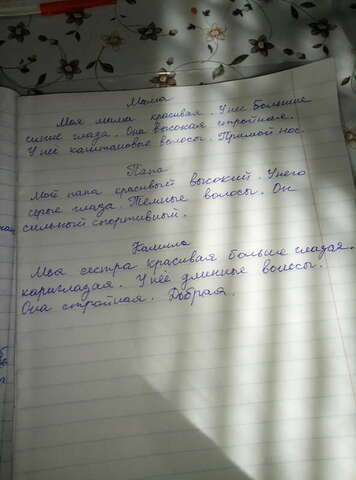 Мама
Моя мама красивая. У неё большие
синие глаза. Она высокая стройная.
У неё каштановые волосы. Прямой нос.
Папа
Мой папа красивый высокий. У него
серые глаза. Темные волосы. Он
сильный спортивный.
Моя сестра красивая больше глазая.
кариглазая. У неё длинные волосы.
Она стройная. Добрая.